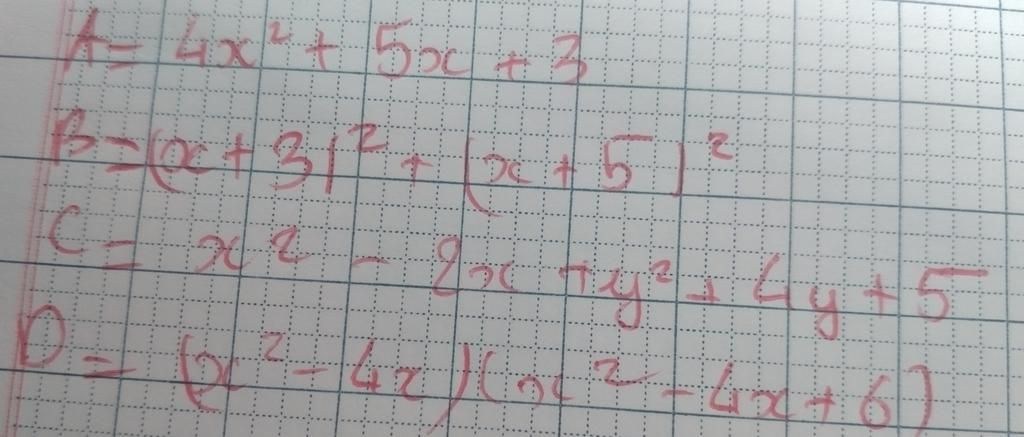 A = 4x² + 5x + 3
B = (x + 3)² + (x + 5)²
C = x² - 2x + y² + 4y + 5
D = (x² - 4x)(x² - 4x + 6)